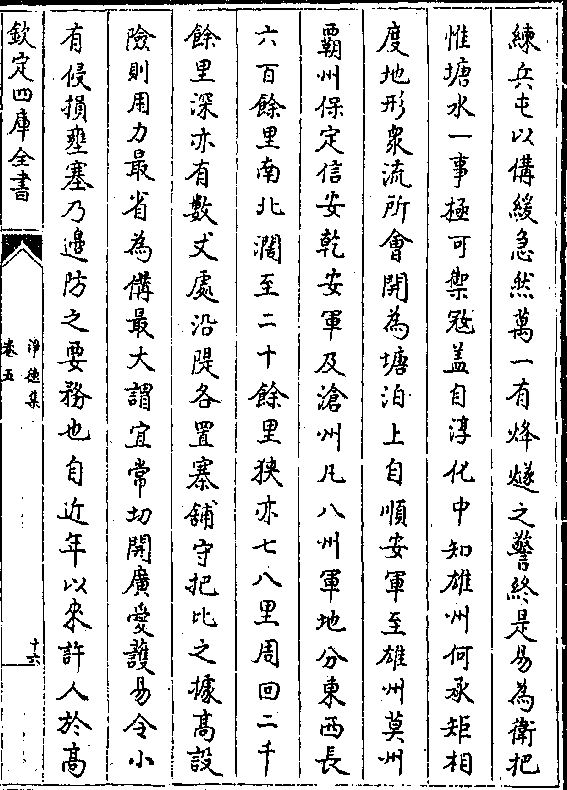 練兵屯以備緩急然萬一有烽燧之警終是易為衛把
惟塘水一事極可禦㓂盖自淳化中知雄州何承矩相
度地形衆流所會開為塘泊上自順安軍至雄州莫州
霸州保定信安乾安軍及滄州凡八州軍地分東西長
六百餘里南北濶至二十餘里狹亦七八里周回二千
餘里深亦有數丈處沿隄各置寨鋪守把比之據髙設
險則用力最省為備最大謂宜常切開廣愛護易令小
有侵損壅塞乃邊防之要務也自近年以來許人於髙
欽定四庫全書
淨德集
卷五
十六